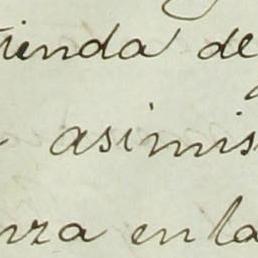 tienda de
asimis
nza en la